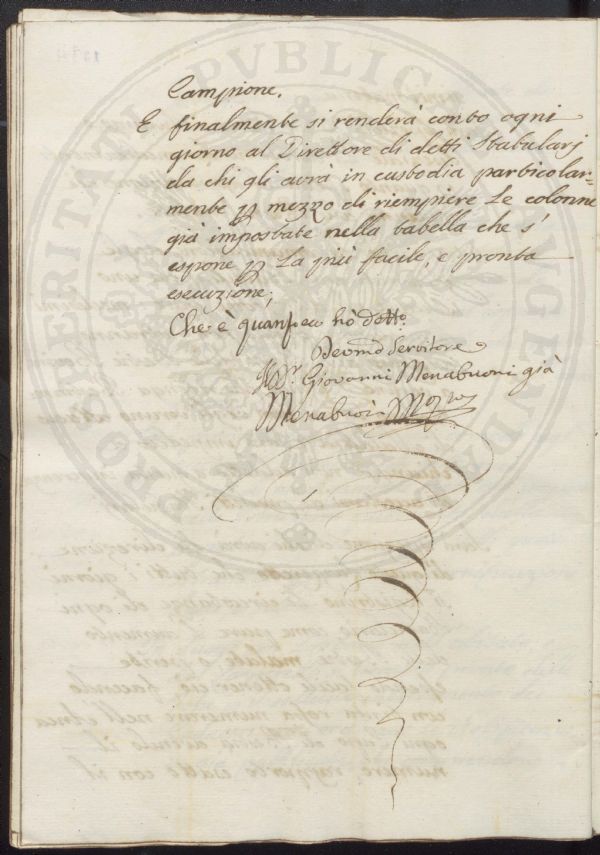 Campione.
E finalmente si renderà conto ogni
giorno al Direttore di detti Stabularj
da chi gli avrà in custodia particolar=
mente p mezzo di riempiere Le colonne
già impostate nella tabella che s'
espone p La più facile, e pronta
esecuzione;
Che è quanto ho detto.
Devmo Servitore
Giovanni Menabuoni già
Menabuoi
PROSPERITATI PUBLICAE AUGENDAE